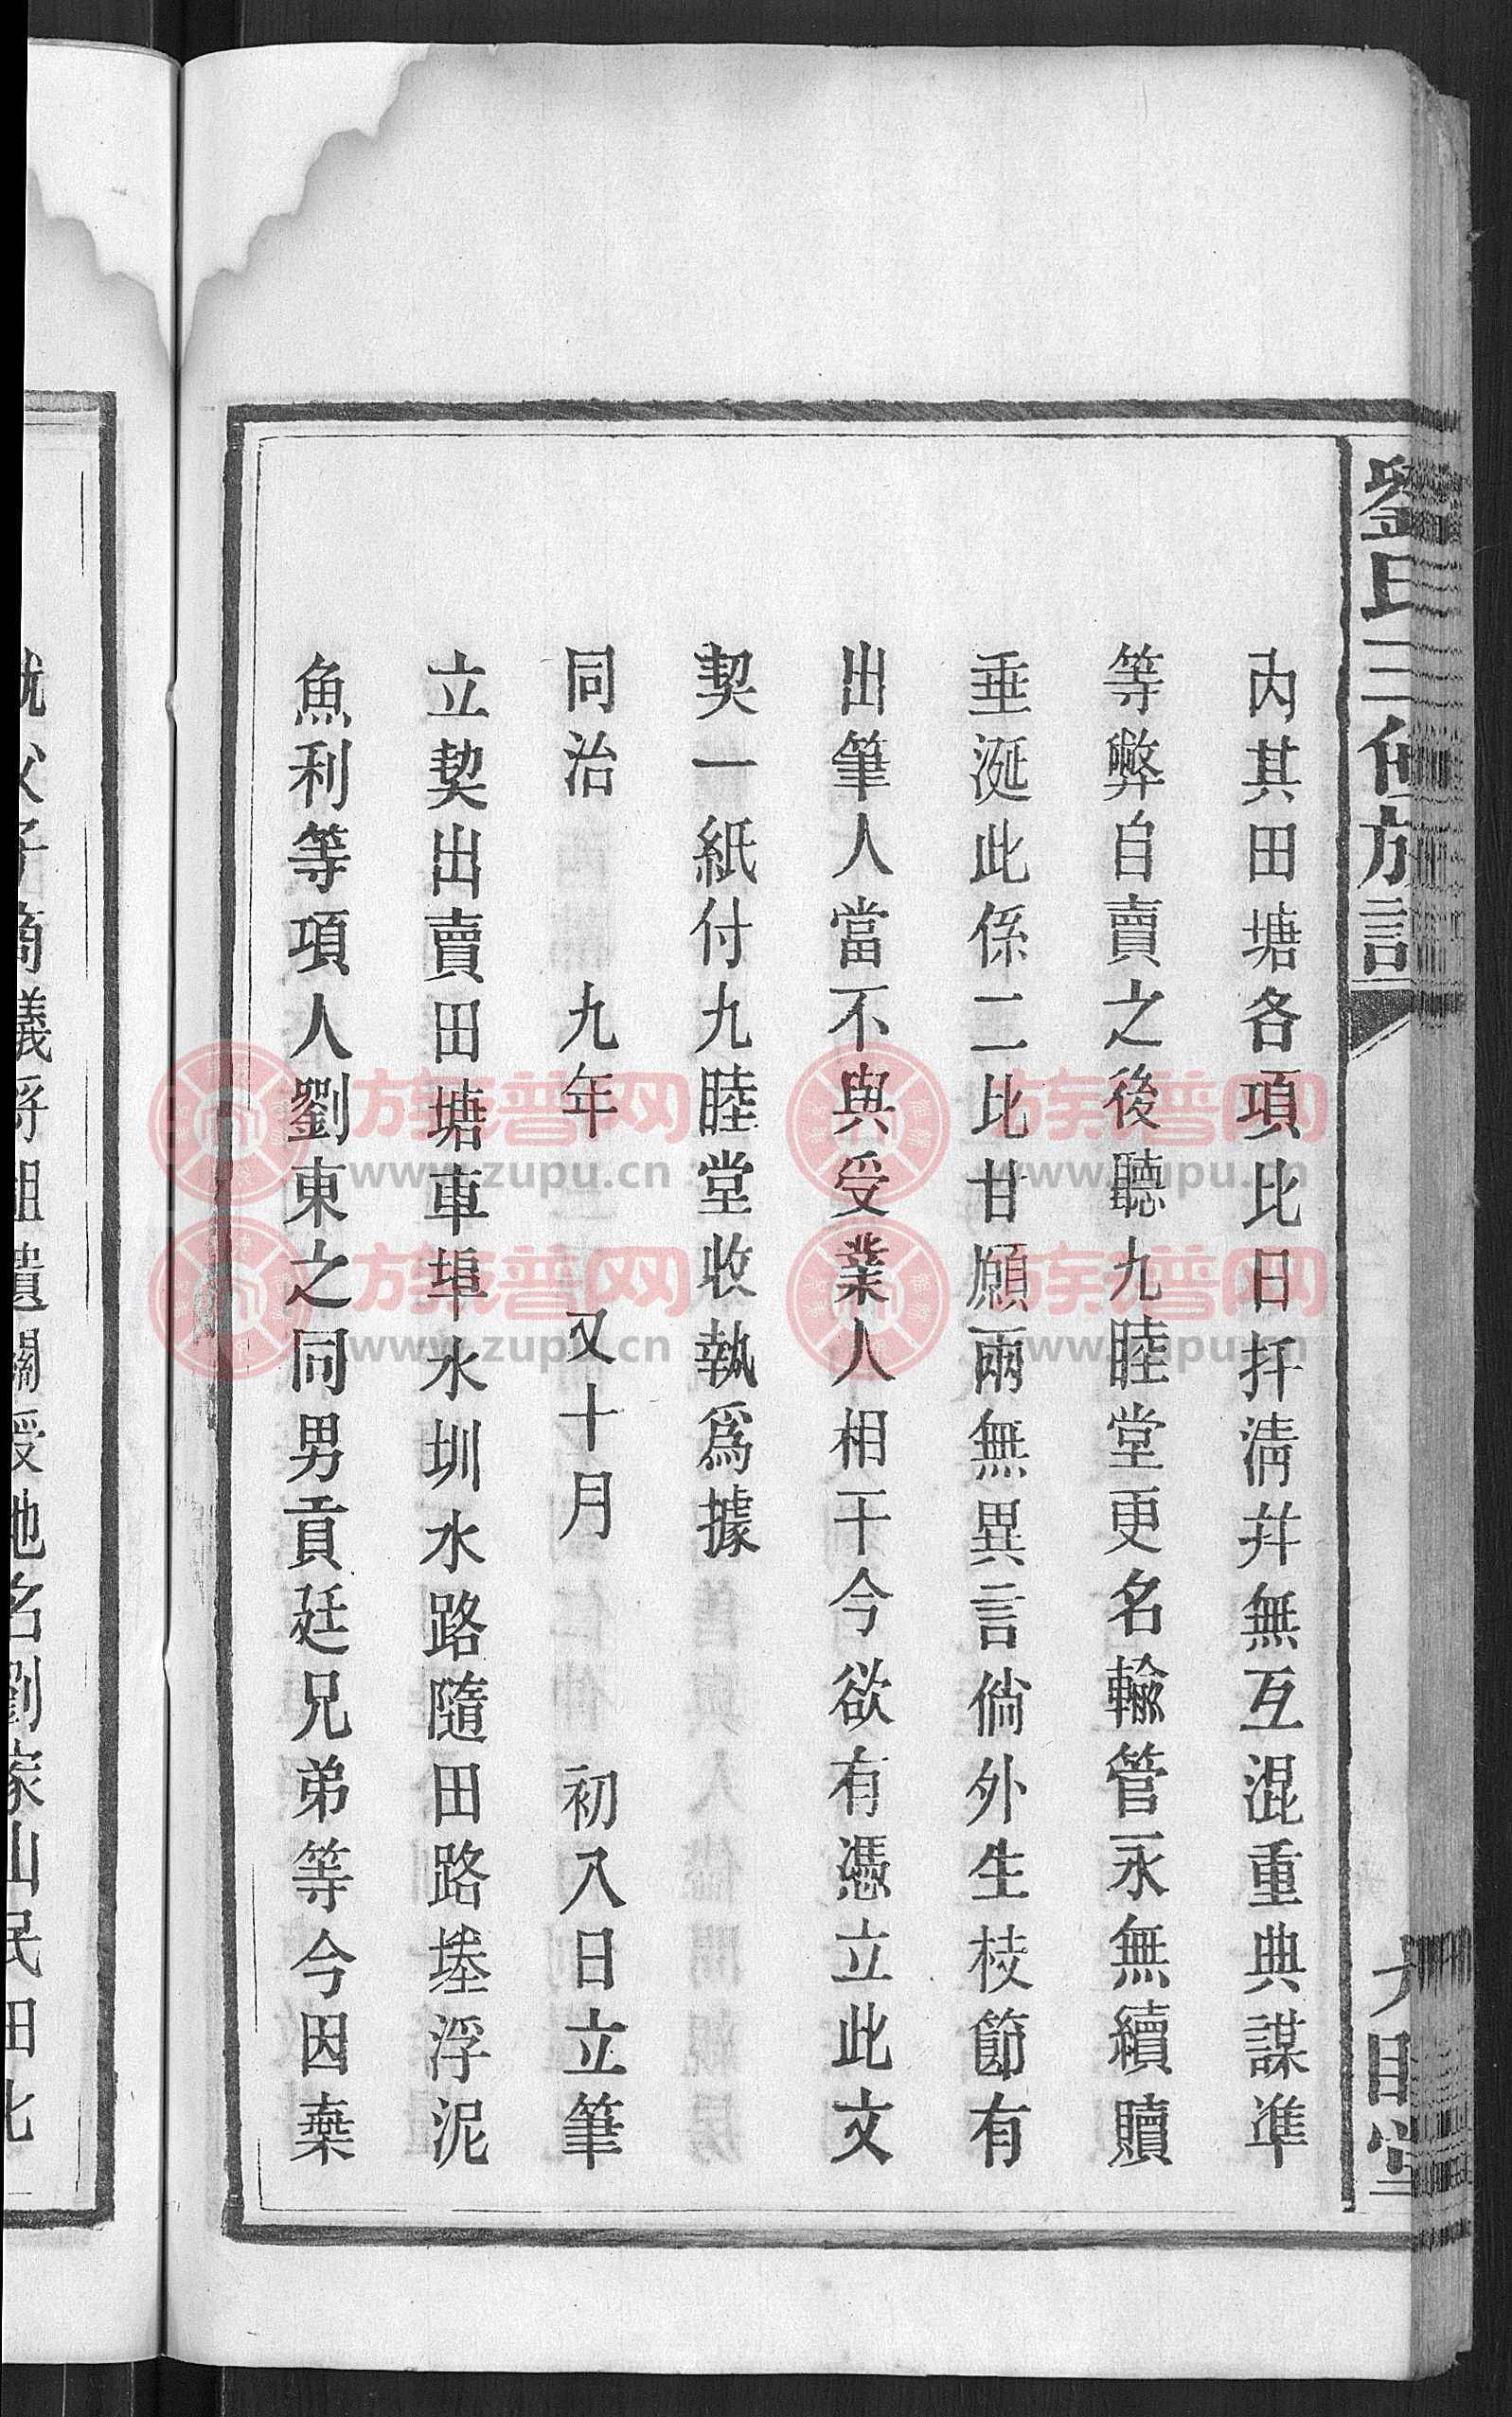 劉氏三修族譜
九睦堂
內其田塘各項比日扦淸幷無互混重典謀準
等弊自賣之後聽九睦堂更名輸管永無續贖
垂涎此係二比甘願兩無異言倘外生枝節有
出筆人當不與受業人相干今欲有憑立此文
契一紙付九睦堂收執爲據
同治 九年 又十月 初八日立筆
立契出賣田塘車埠水圳水路隨田路墢浮泥
魚利等項人劉東之同男貢廷兄弟等今因棄
就父子商議將祖遺關受地名劉家山民田北
族谱网 www.zupu.cn
族谱网 www.zupu.cn
族谱网 www.zupu.cn
族谱网 www.zupu.cn